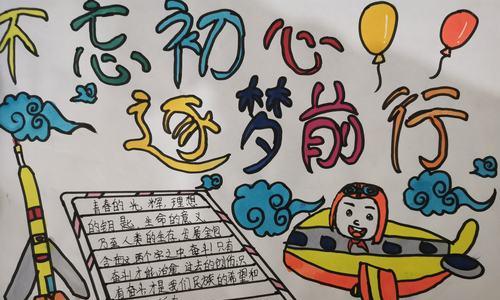 不忘初心
逐梦前行
青春的光,辉,理想
的钥匙,生命的意义
乃至人类的生存发展全包
含在这两个字之中奋斗!只有
奋斗才能治愈过去的创伤,只
有奋斗才是我们民族的希望和